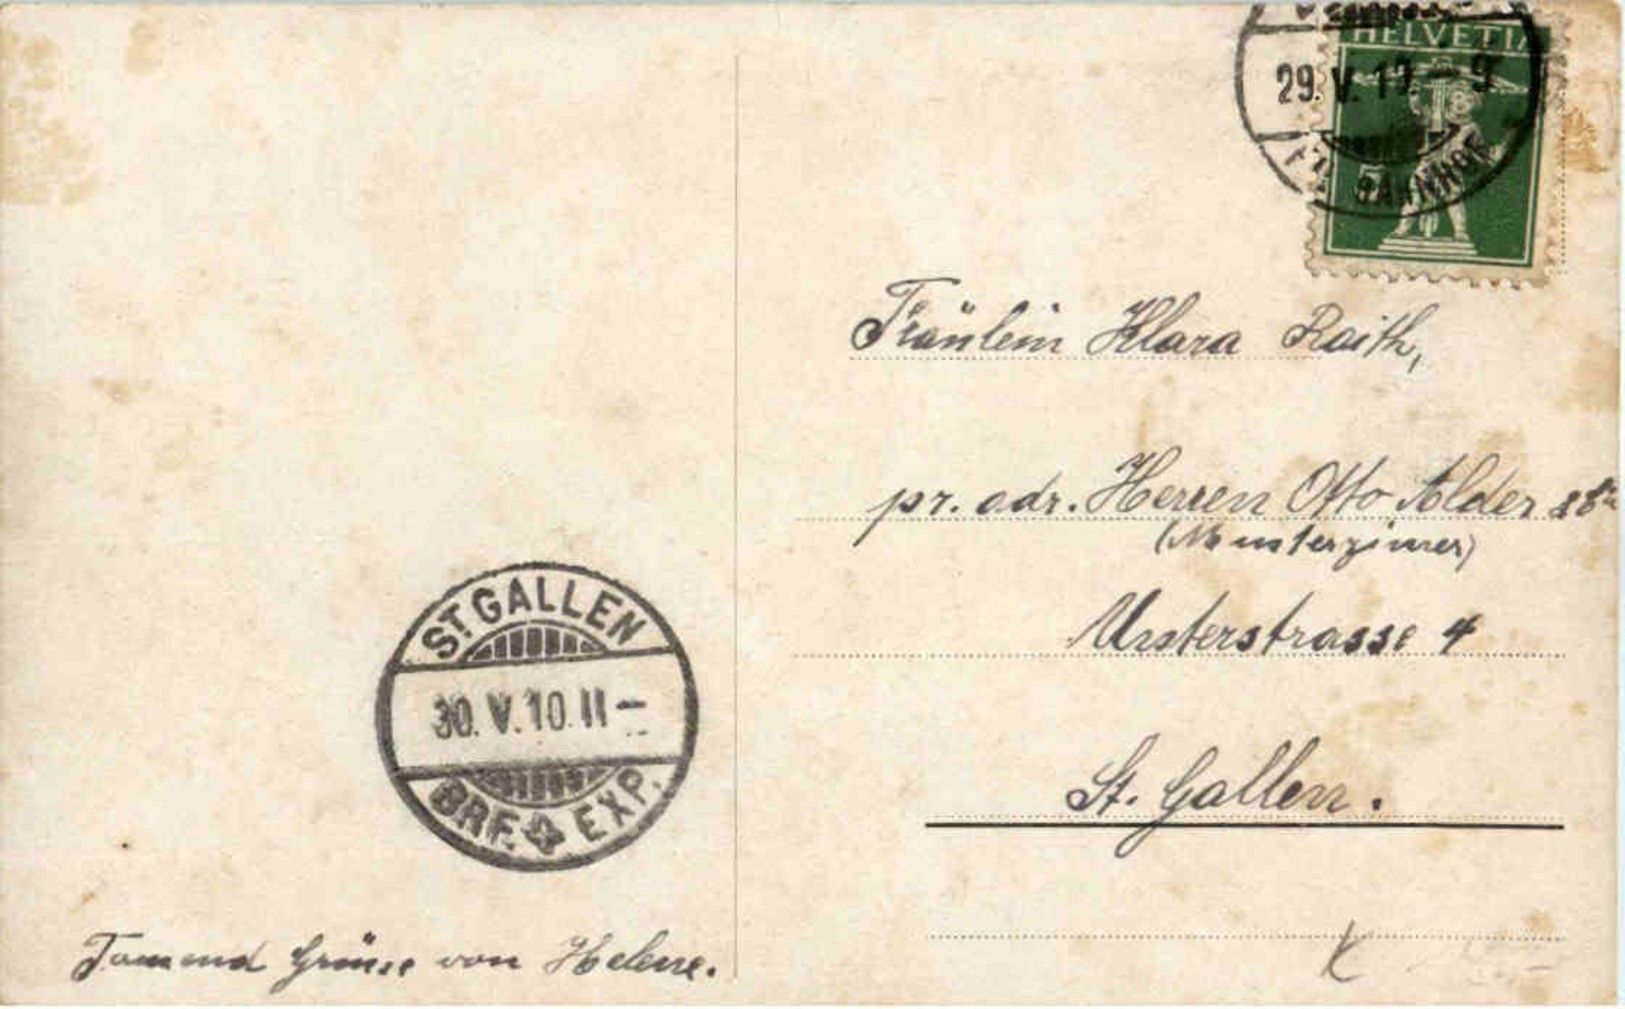 HELVETIA
29. V. 10. – 9
BAHNHOF
Fräulein Klara Raith,
pr. adr. Herren Otto Alder &
(Musterzimer)
St. Gallen.
ST. GALLEN
30. V. 10. 11 –
BRF. EXP.
Tausend Grüsse von Helene.